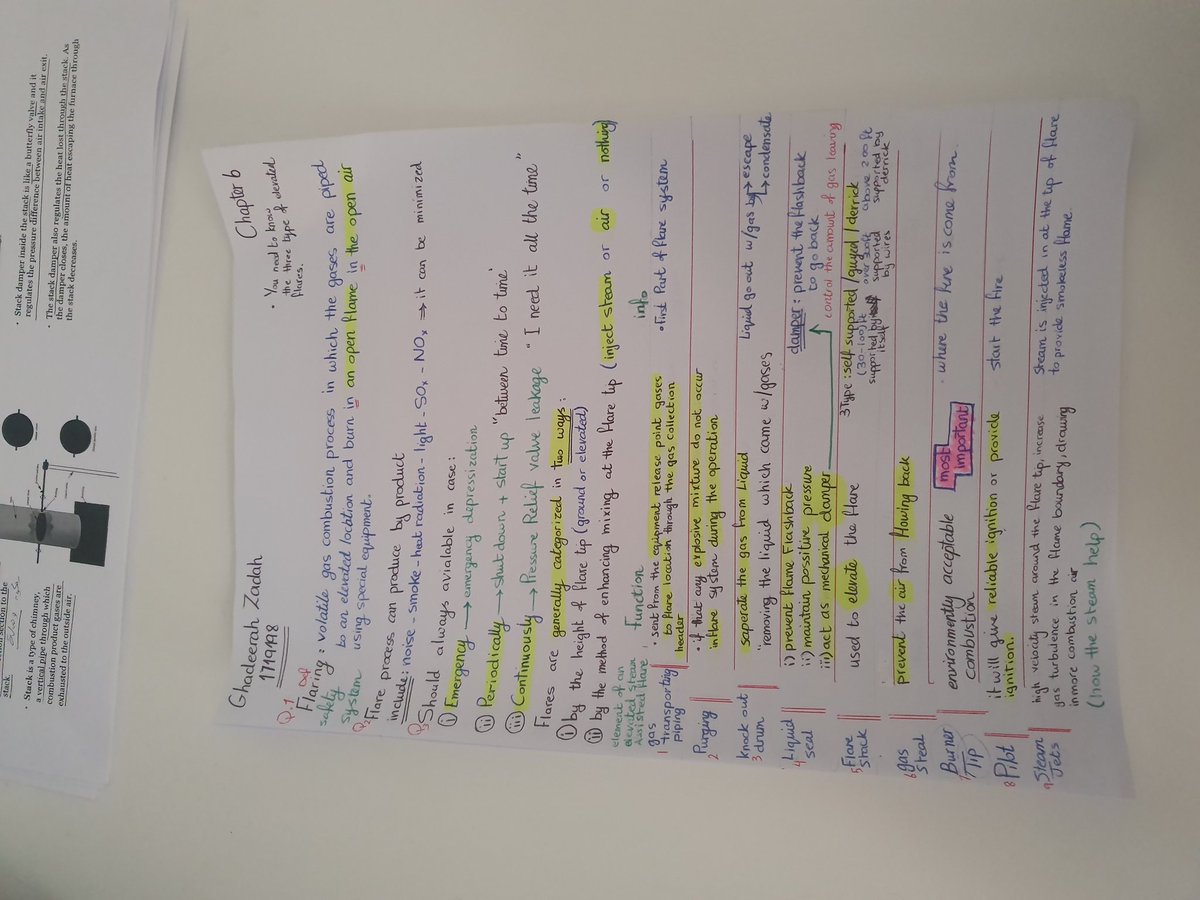 Ghadeerah Zadah
1719198
Chapter 6
• You need to know
the three type of elevated
flares.
Q.1 Def
Flaring : volatile gas combustion process in which the gases are piped
safety to an elevated location and burn in an open flame in the open air
system using special equipment.
Flare process can produce by product
include: noise - smoke - heat radiation - light - SOx - NOx ⇒ it can be minimized
Should always avialable in case :
(i) Emergency → emergency depressization
(ii) Periodically → shut down + start up "between time to time"
(iii) Continuously → Pressure Relief valve leakage " I need it all the time "
Flares are generally categorized in two ways :
(i) by the height of flare tip (ground or elevated)
(ii) by the method of enhancing mixing at the flare tip (inject steam or air or nothing)
element of an
elevated steam
Assisted flare
Function
info
1 gas
transporting
piping
• sent from the equipment release point gases
to flare location through the gas collection
header
• First Part of flare system
2 Purging
• if that any explosive mixture do not occur
in flare system during the operation
knock out
3 drum
saperate the gas from Liquid
"removing the liquid which came w/gases
Liquid go out w/gas by → escape
↳ condensate
4 Liquid
seal
i) prevent flame Flashback
ii) maintain possitive pressure
iii) act as mechanical damper
damper : prevent the flashback
to go back
control the amount of gas leaving
5 Flare
Stack
used to elevate the flare
3 Type : self supported / guyed / derrick
(30-100) ft
supported by
itself
over 200ft
supported
by wires
above 200 ft
supported by
derrick
6 gas
Steal
prevent the air from flowing back
7 Burner
Tip
environmently acceptable
combustion
most
important
• where the fire is come from.
8 Pilot
it will give reliable ignition or provide
ignition.
start the fire
9 Steam
Jets
high velocity steam around the flare tip, increase
gas turbulence in the flame boundary, drawing
in more combustion air
(how the steam help)
Steam is injected in at the tip of flare
to provide smokeless flame.
stack.
• Stack is a type of chimney,
a vertical pipe through which
combustion product gases are
exhausted to the outside air.
• Stack damper inside the stack is like a butterfly valve and it
regulates the pressure difference between air intake and air exit.
• The stack damper also regulates the heat lost through the stack. As
the damper closes, the amount of heat escaping the furnace through
the stack decreases.